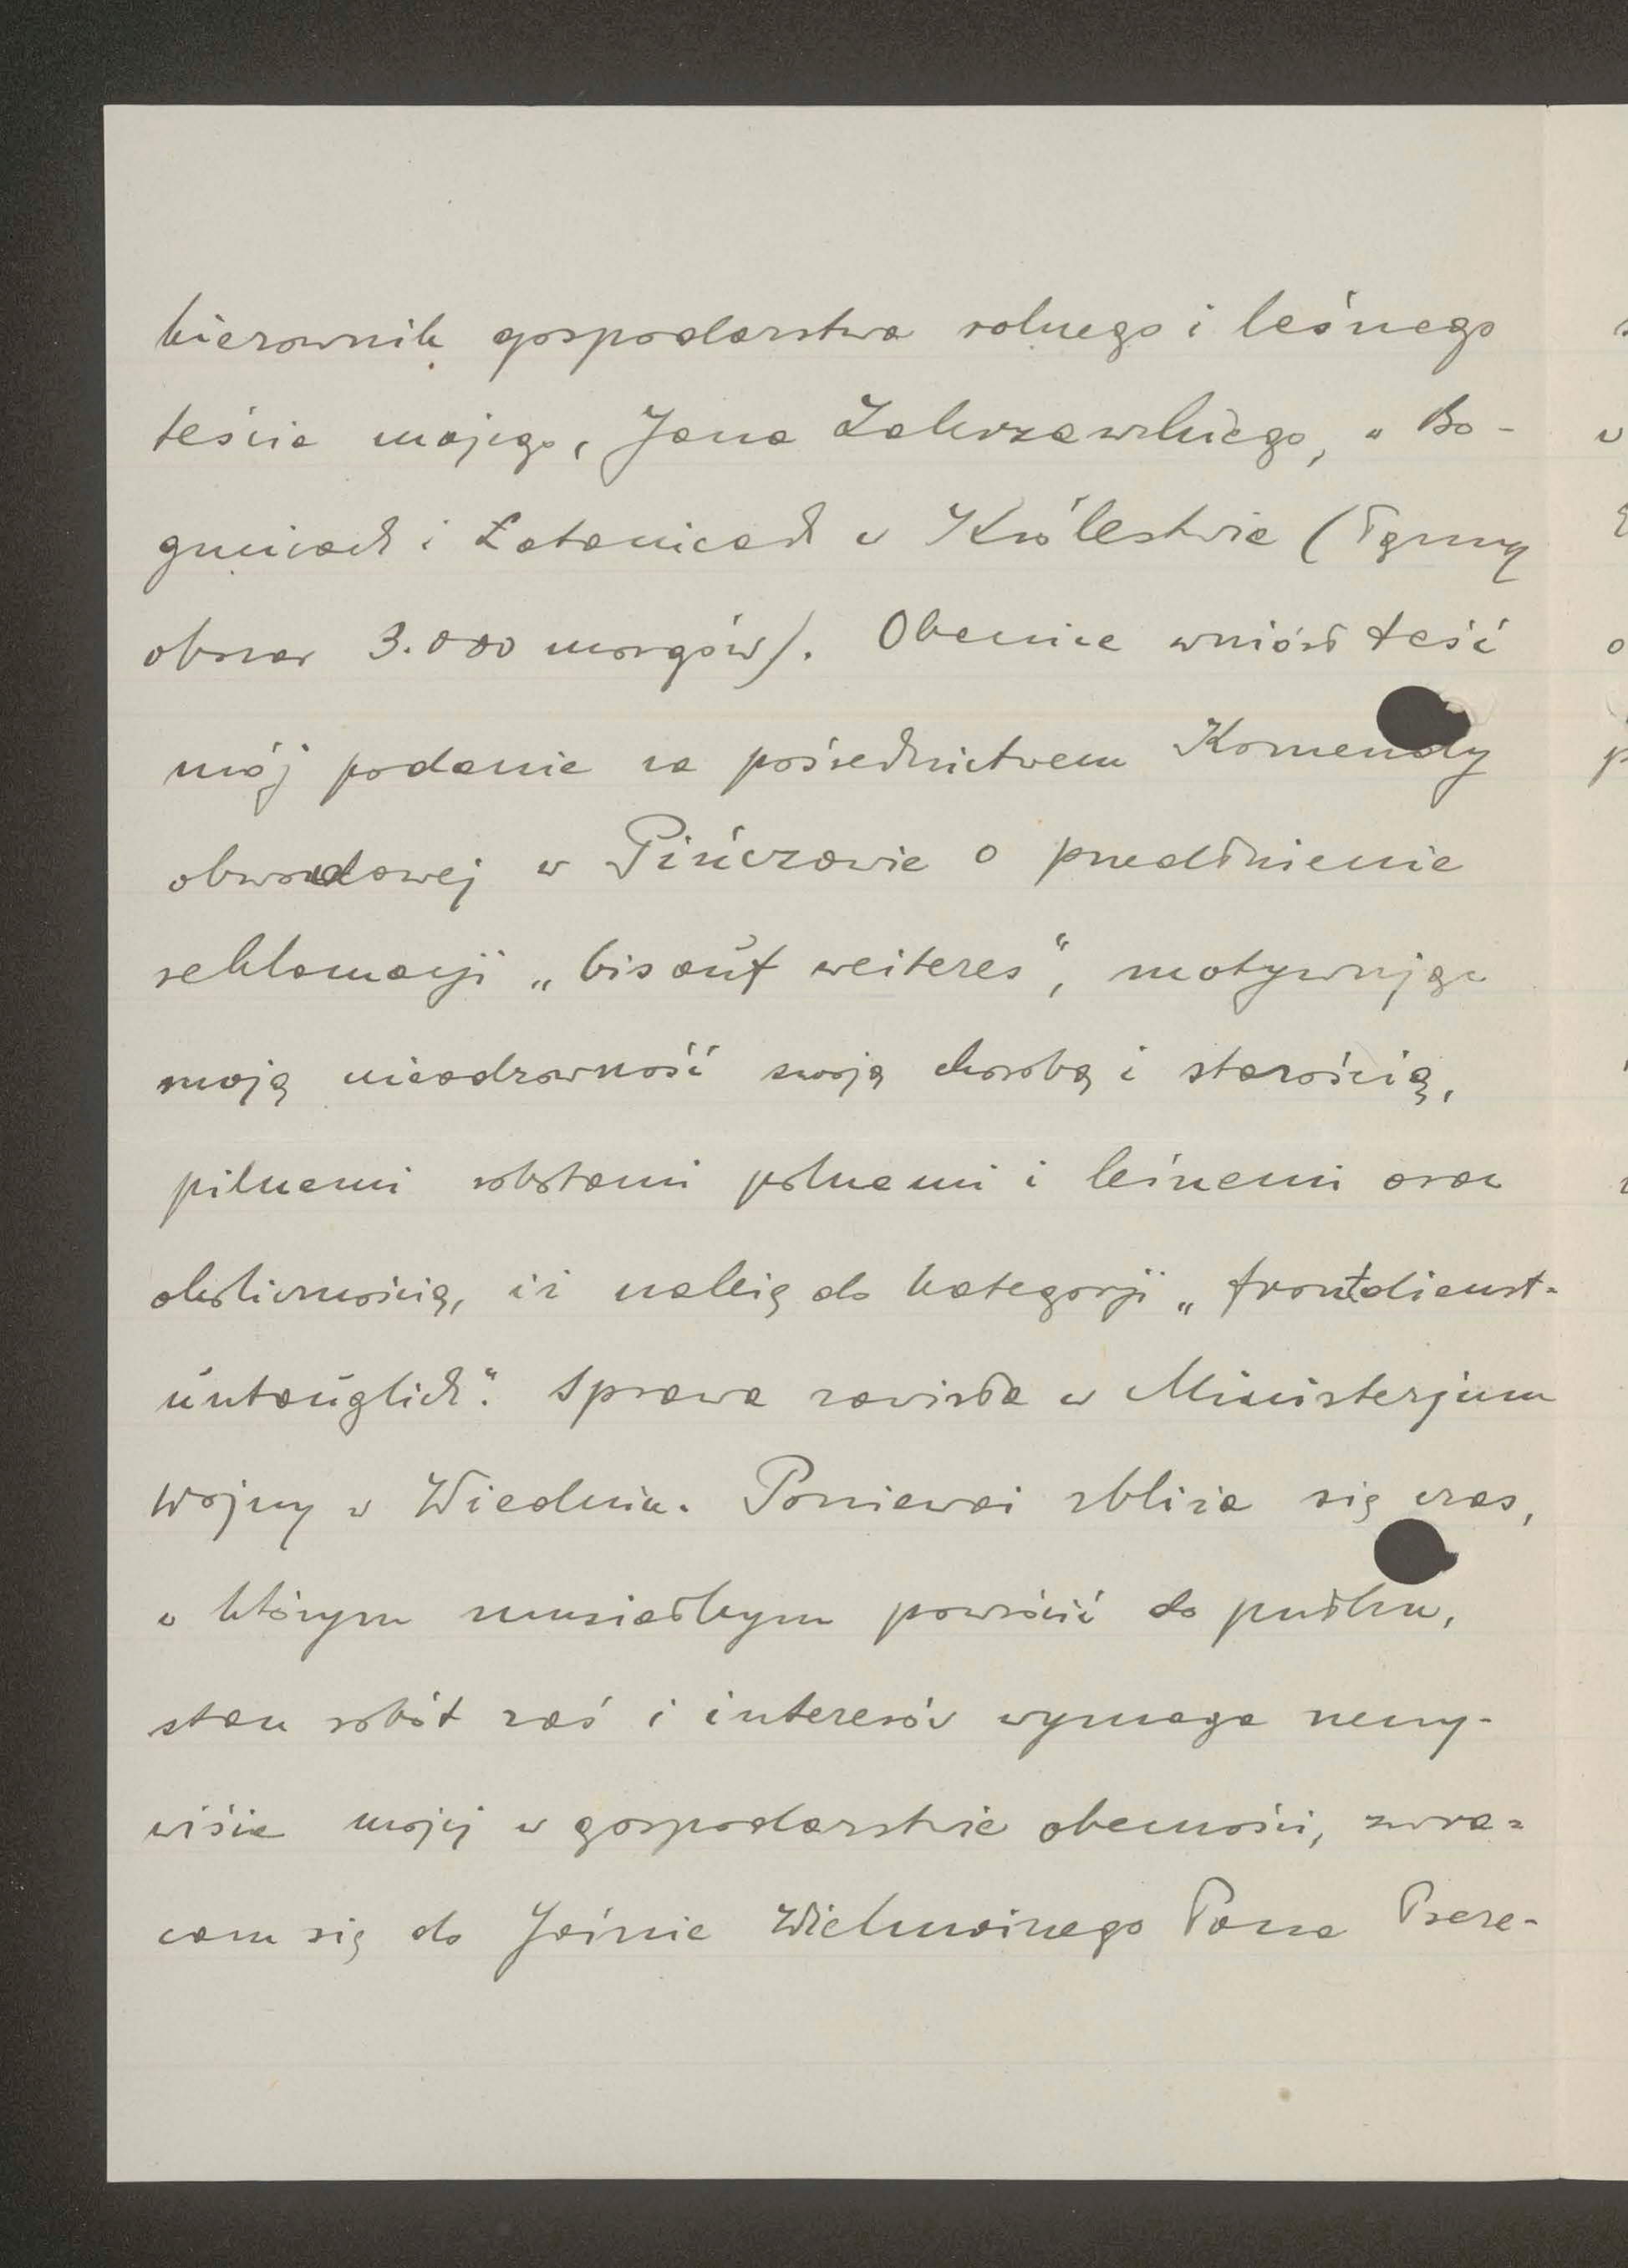 kierownik gospodarstwa rolnego i leśnego
teścia mojego, Jana Zakrzewskiego, w Bo-
gucicach i Łatanicach w Królestwie (łączny
obszar 3.000 morgów). Obecnie wniósł teść
mój podanie za pośrednictwem Komendy
obwodowej w Pińczowie o przedłużenie
reklamacji „bis auf weiteres“, motywując
moją nieodzowność swoją chorobą i starością,
pilnemi robotami polnemi i leśnemi oraz
okolicznością, iż należę do kategorji „frontdienst-
untauglich“. Sprawa zawisła w Ministerjum
Wojny w Wiedniu. Ponieważ zbliża się czas,
w którym musiałbym powrócić do pułku,
stan robót zaś i interesów wymaga rzeczy-
wiście mojej w gospodarstwie obecności, zwra-
cam się do Jaśnie Wielmożnego Pana Preze-